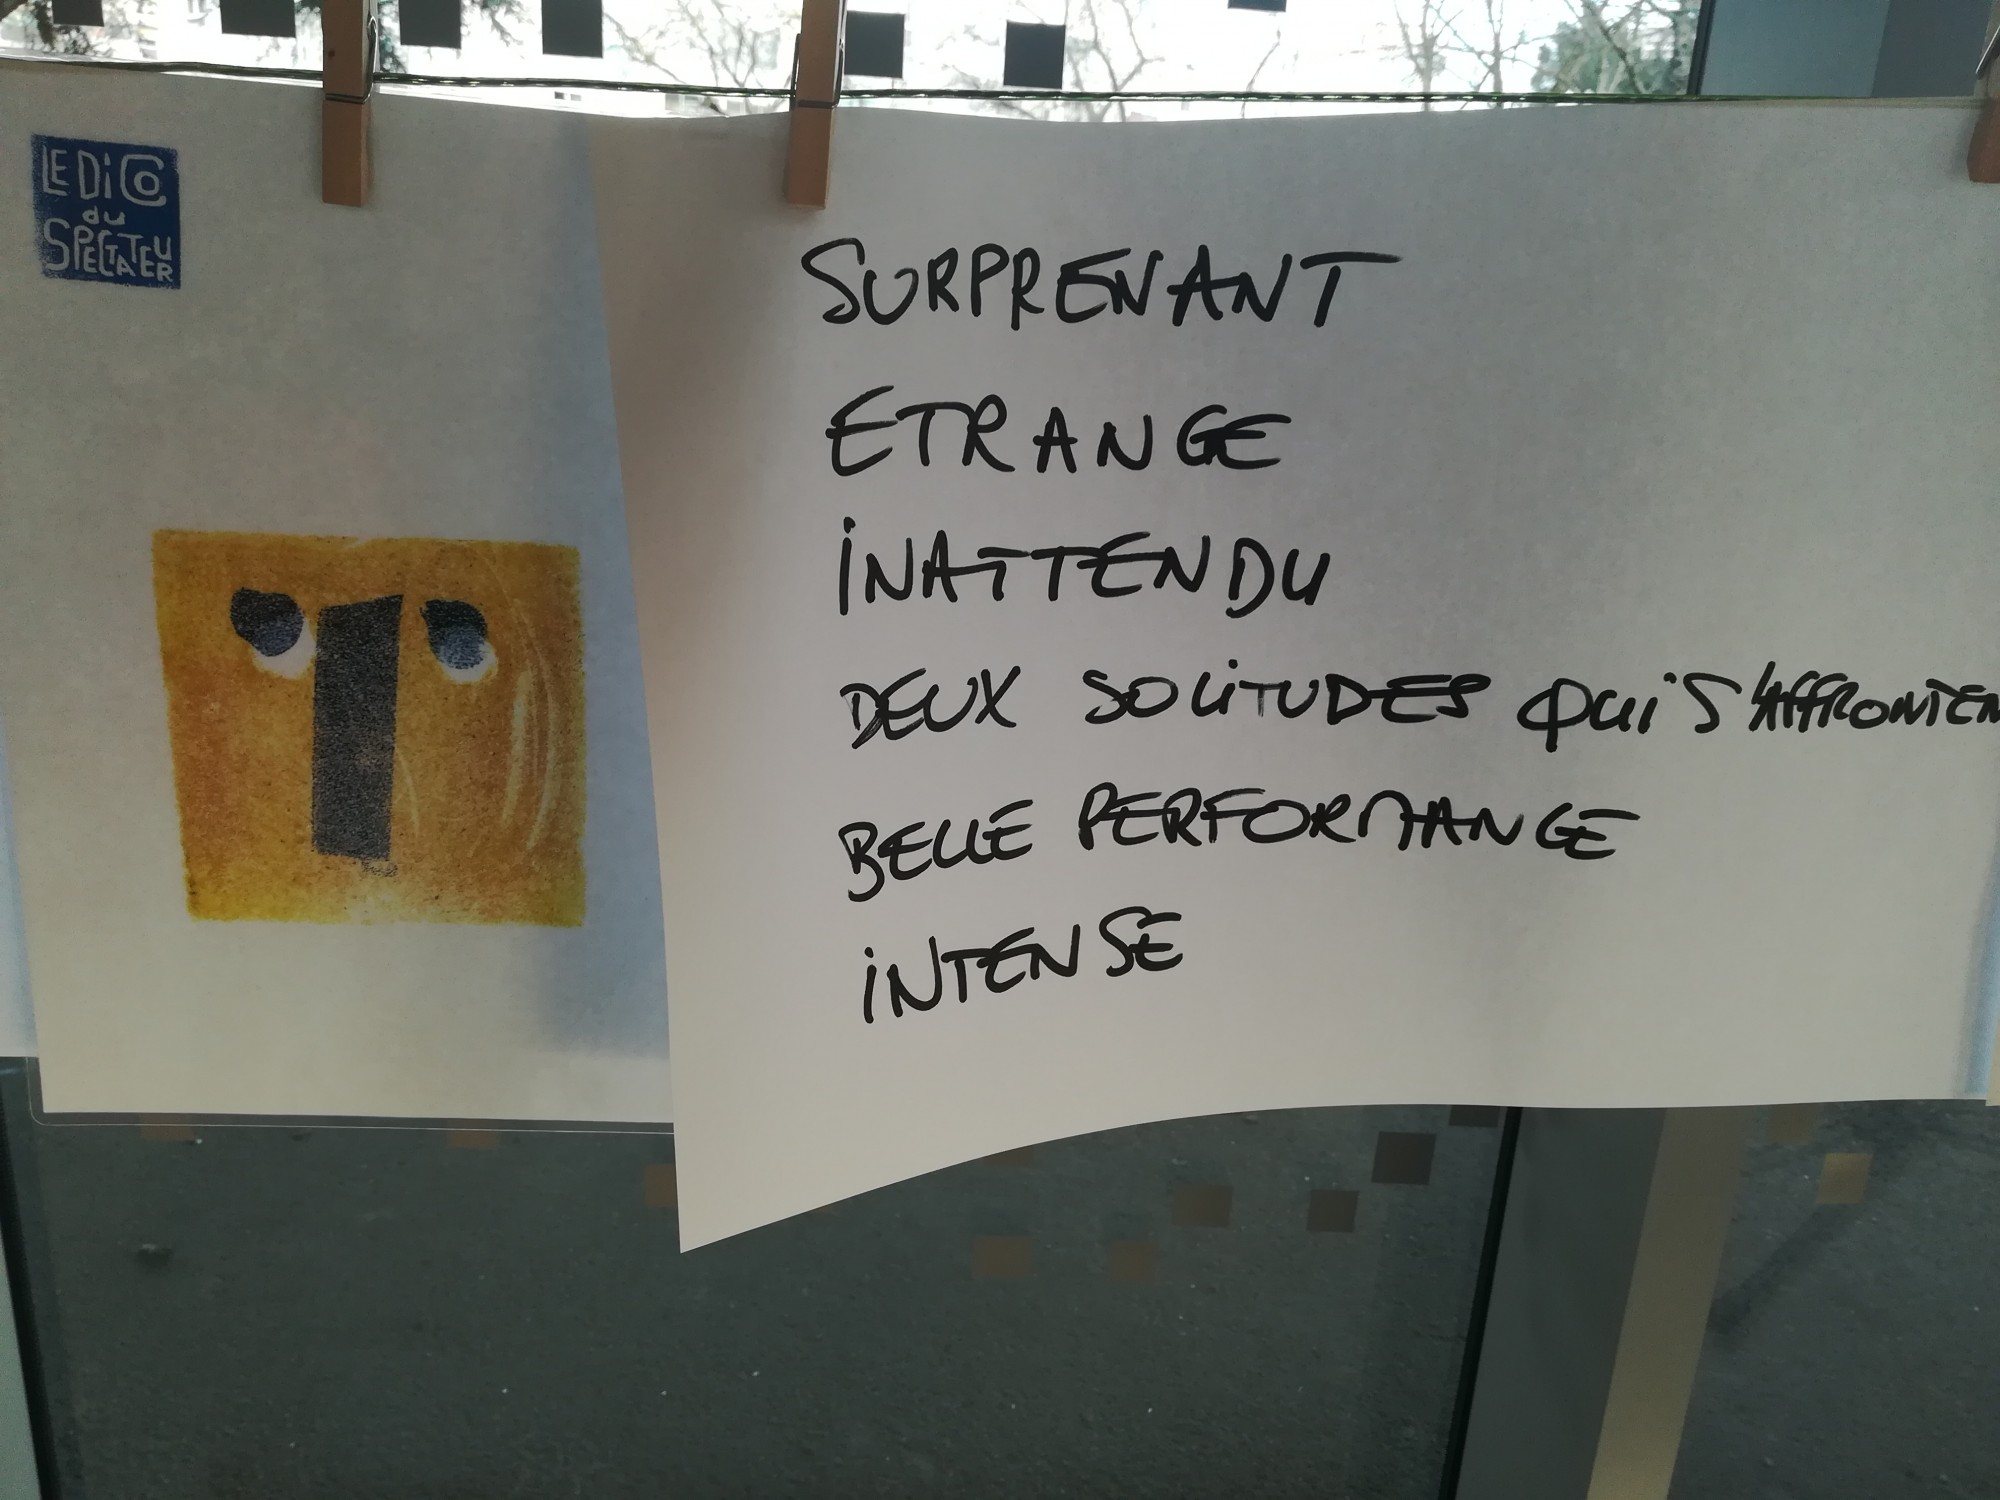 LE DiCO
du
SPECTATEU
ER
SURPRENANT
ETRANGE
iNATTENDU
DEUX SOLITUDES QUi S'AFFRONTEN
BELLE PERFORMANCE
iNTENSE